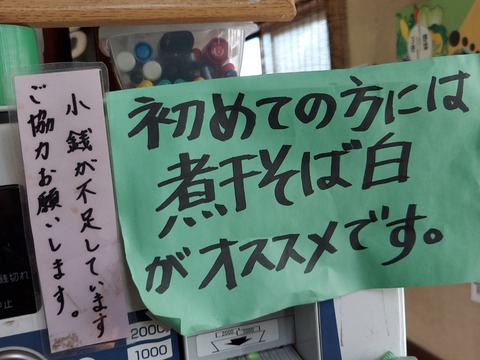 初めての方には
煮干そば白
がオススメです。
小銭が不足しています
ご協力お願いします。
銭切れ
止
2000
1000